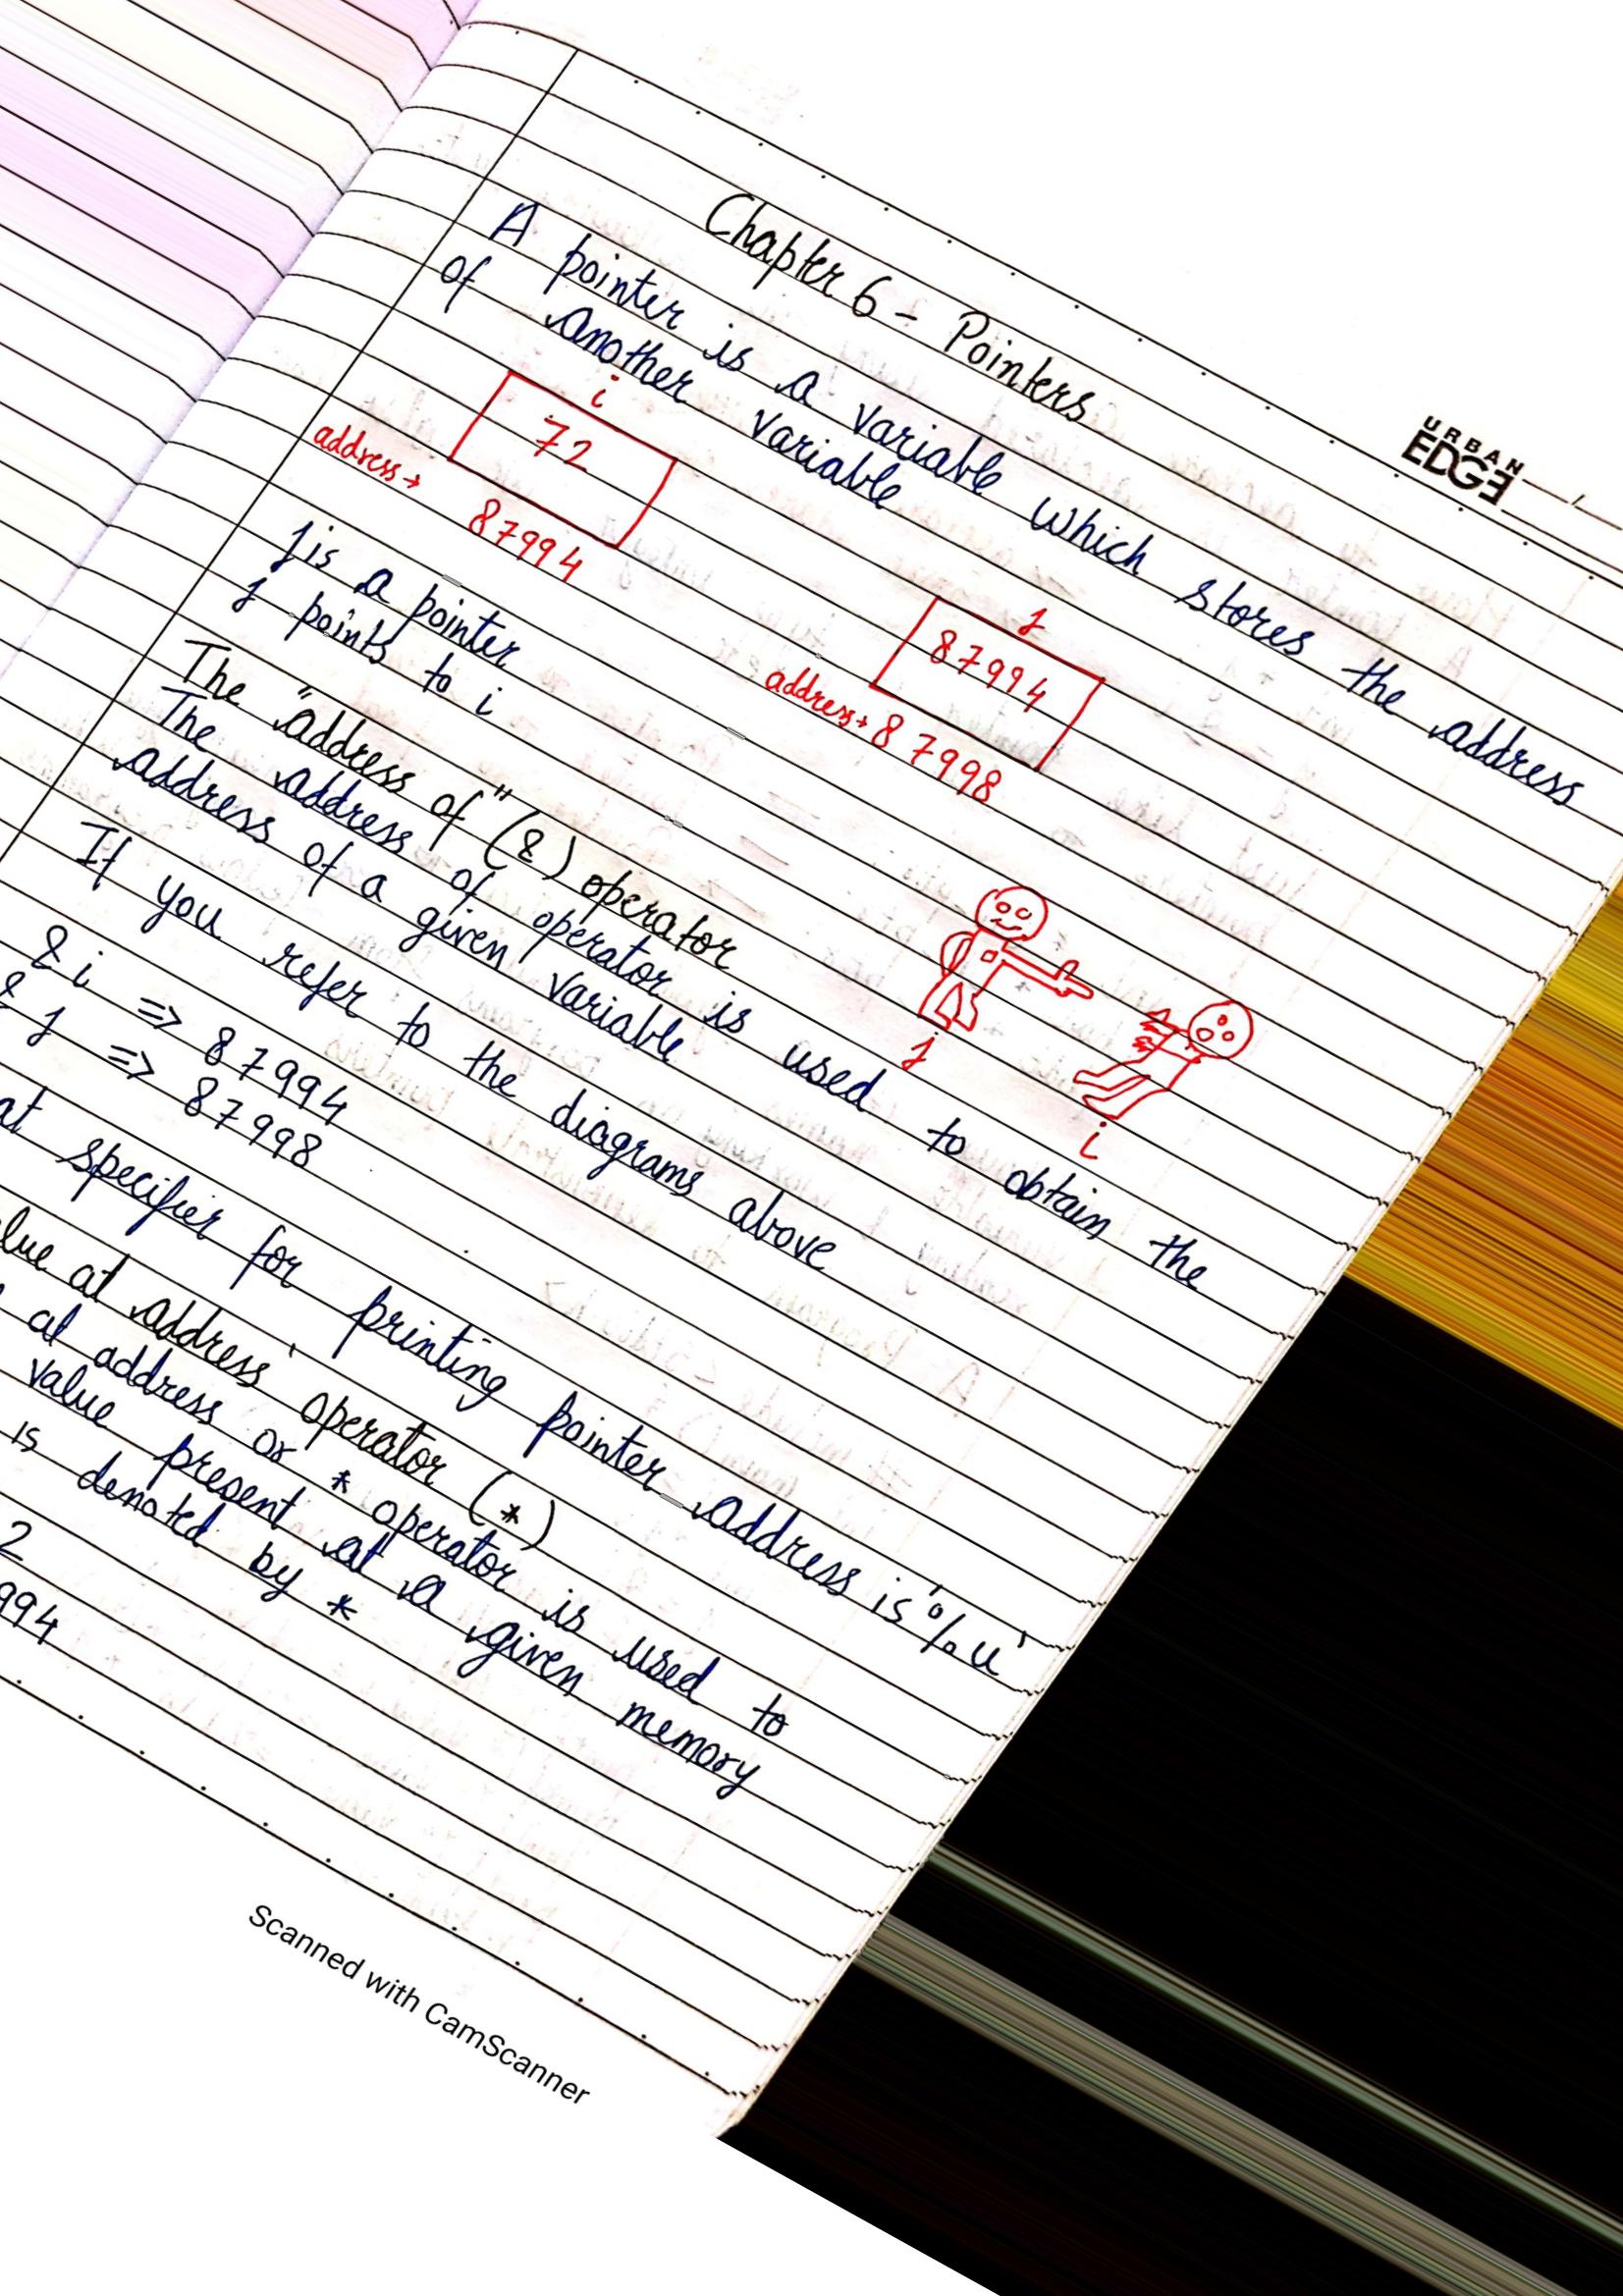 URBAN
EDGE
Chapter 6 - Pointers
A pointer is a variable which stores the address
of another variable
i
72
address →
87994
j
87994
address → 87998
j is a pointer
j points to i
j
i
The "address of" (&) operator
The address of operator is used to obtain the
address of a given variable
If you refer to the diagrams above
&i => 87994
&j => 87998
at specifier for printing pointer address is '%u'
lue at address' operator (*)
at address or * operator is used to
value present at a given memory
is denoted by *
2
994
Scanned with CamScanner